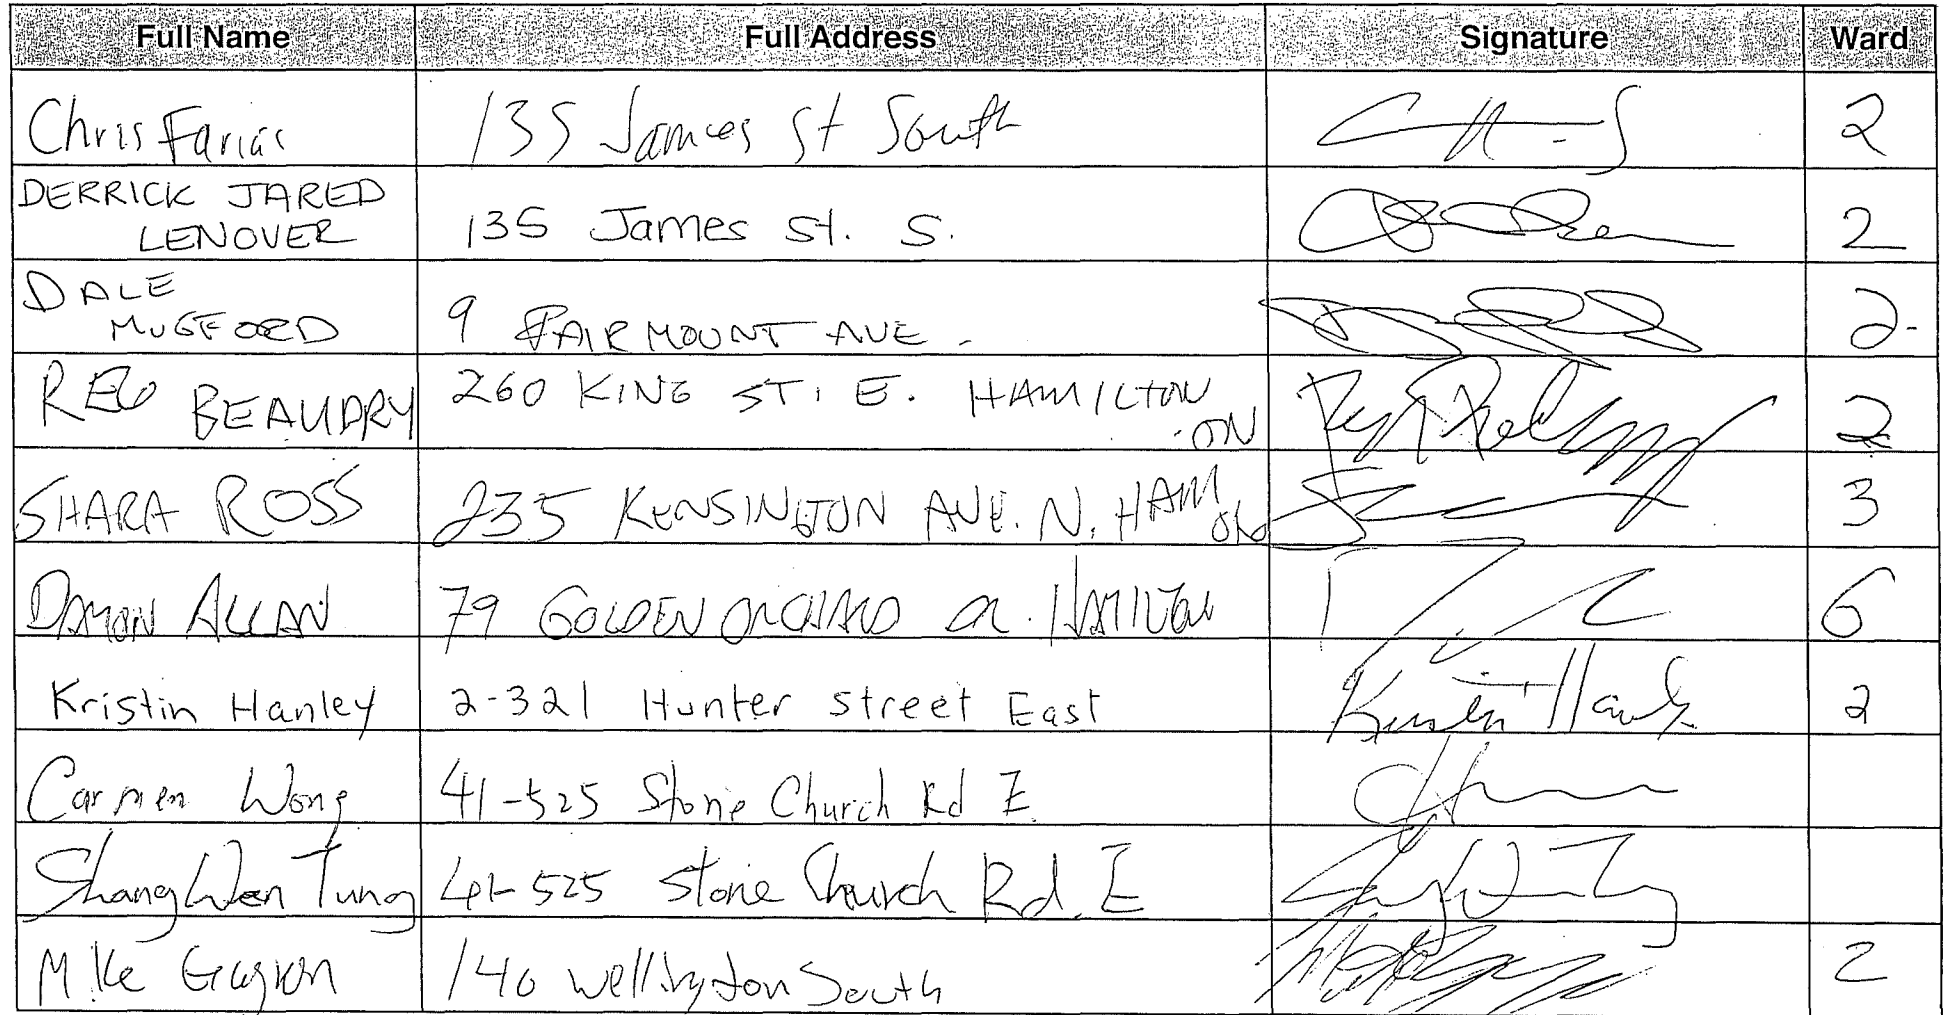 Full Name Full Address Signature Ward
Chris Farias 135 James St South 2
DERRICK JARED
LENOVER 135 James St. S. 2
DALE
MUGFORD 9 FAIRMOUNT AVE. 2
REG BEAUDRY 260 KING ST. E. HAMILTON
ON 2
SHARA ROSS 235 KENSINGTON AVE. N. HAM
ON 3
DAMON ALLAN 79 GOLDEN ORCHARD DR. HAMILTON 6
Kristin Hanley 2-321 Hunter Street East Kristin Hanley 2
Carmen Wong 41-525 Stone Church Rd E
ShangWen Tung 41-525 Stone Church Rd. E
Mike 140 Wellington South 2